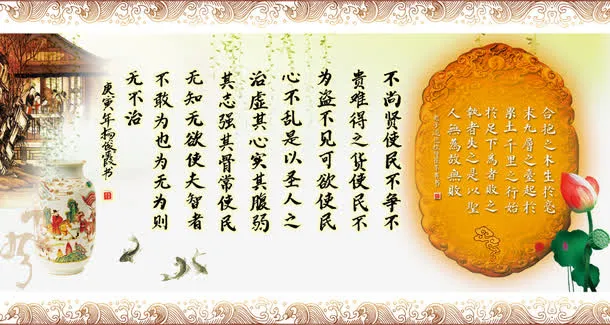 合抱之木生於毫
末九層之臺起於
累土千里之行始
於足下為者敗之
執者失之是以聖
人無為故無敗
不尚贤使民不争不
贵难得之货使民不
为盗不见可欲使民
心不乱是以圣人之
治虚其心实其腹弱
其志强其骨常使民
无知无欲使夫智者
不敢为也为无为则
无不治
庚寅年杨俊霞书